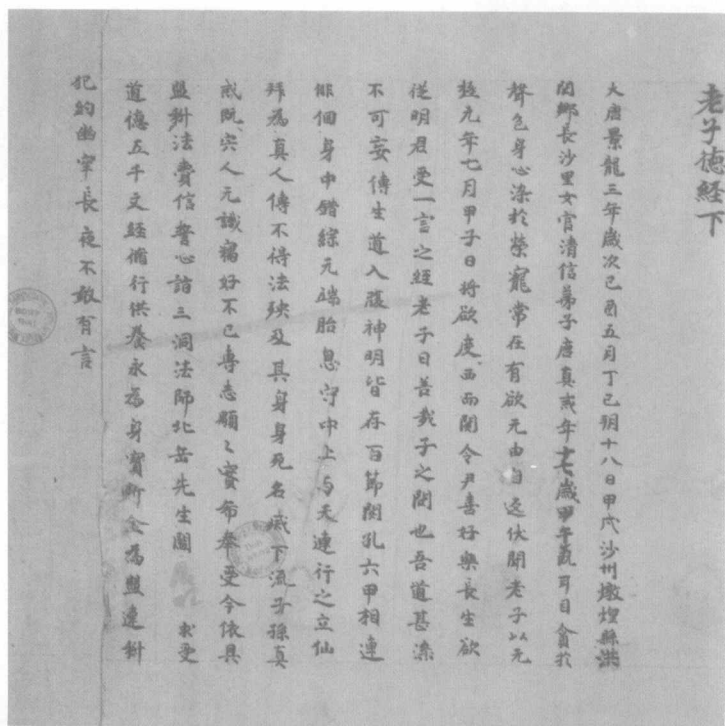 老子德経下
大唐景龍三年歲次己酉五月丁巳朔十八日甲戌沙州燉煌縣洪
閏鄉長沙里女官清信弟子唐真戒年十七歲甲午生耳目貪於
聲色身心染於榮寵常在有欲无由自返伏聞老子以无
極元年七月甲子日将欲度西而關令尹喜好樂長生欲
從明君受一言之經老子曰善哉子之問也吾道甚深
不可妄傳生道入腹神明皆存百節關孔六甲相連
徘徊身中錯綜无端胎息守中上与天連行之立仙
拜為真人傳不得法殃及其身身死名滅下流子孫真
戒既宍人无識竊好不已專志顒〻賫帋奉受今依具
盟科法賷信誓心詣三洞法師北岳先生閻 求受
道德五千文經備行供養永為身寳断金為盟違科
犯約幽牢長夜不敢有言